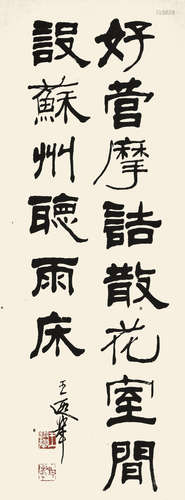 好營摩詰散花室間
設蘇州聽雨床
王遐舉